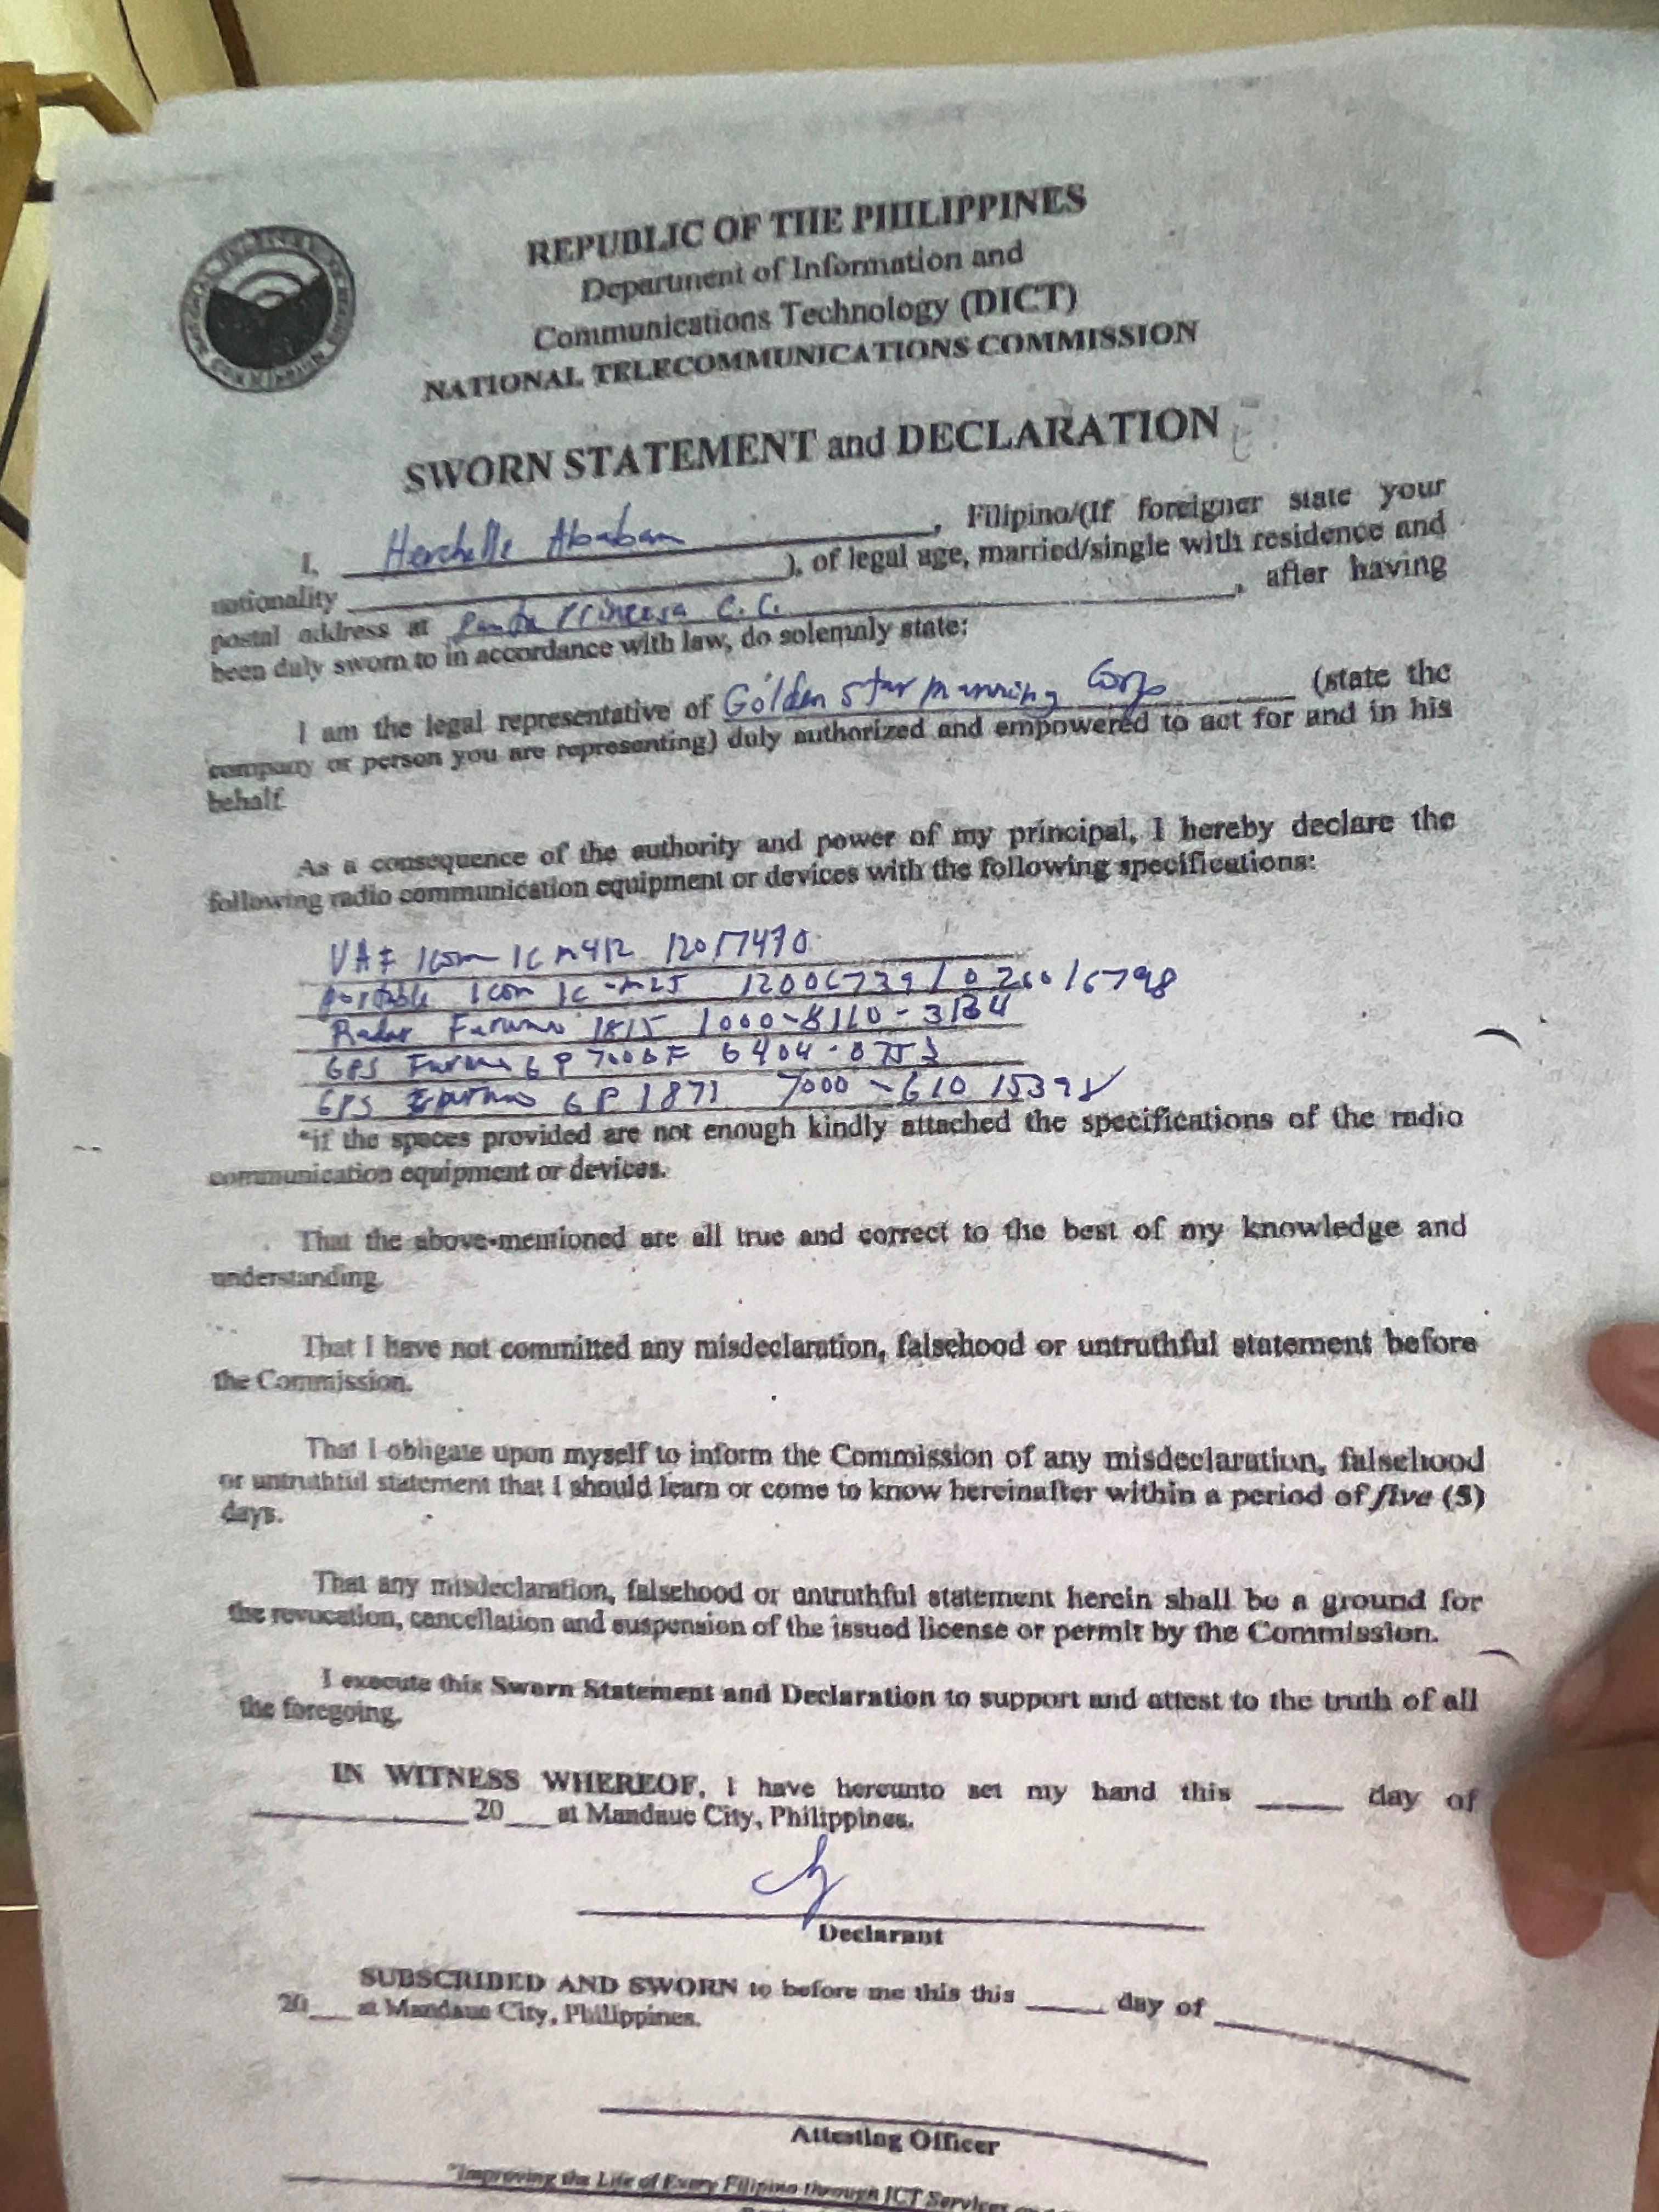 REPUBLIC OF THE PHILIPPINES
Department of Information and
Communications Technology (DICT)
NATIONAL TELECOMMUNICATIONS COMMISSION
SWORN STATEMENT and DECLARATION
I, Herchelle Ababan, Filipino/(If foreigner state your
nationality ), of legal age, married/single with residence and
postal address at Princesa C.C., after having
been duly sworn to in accordance with law, do solemnly state:
I am the legal representative of Golden Star Manning Corp (state the
company or person you are representing) duly authorized and empowered to act for and in his
behalf.
As a consequence of the authority and power of my principal, I hereby declare the
following radio communication equipment or devices with the following specifications:
Icom IC M412
portable Icom IC-M25
Radar Furuno 1815
GPS Furuno GP
GPS GP 1871 7000
*if the spaces provided are not enough kindly attached the specifications of the radio
communication equipment or devices.
That the above-mentioned are all true and correct to the best of my knowledge and
understanding.
That I have not committed any misdeclaration, falsehood or untruthful statement before
the Commission.
That I obligate upon myself to inform the Commission of any misdeclaration, falsehood
or untruthful statement that I should learn or come to know hereinafter within a period of five (5)
days.
That any misdeclaration, falsehood or untruthful statement herein shall be a ground for
the revocation, cancellation and suspension of the issued license or permit by the Commission.
I execute this Sworn Statement and Declaration to support and attest to the truth of all
the foregoing.
IN WITNESS WHEREOF, I have hereunto set my hand this ____ day of
____ 20__ at Mandaue City, Philippines.
Declarant
SUBSCRIBED AND SWORN to before me this this ____ day of ____
20__ at Mandaue City, Philippines.
Attesting Officer
"Improving the Life of Every Filipino through ICT Services